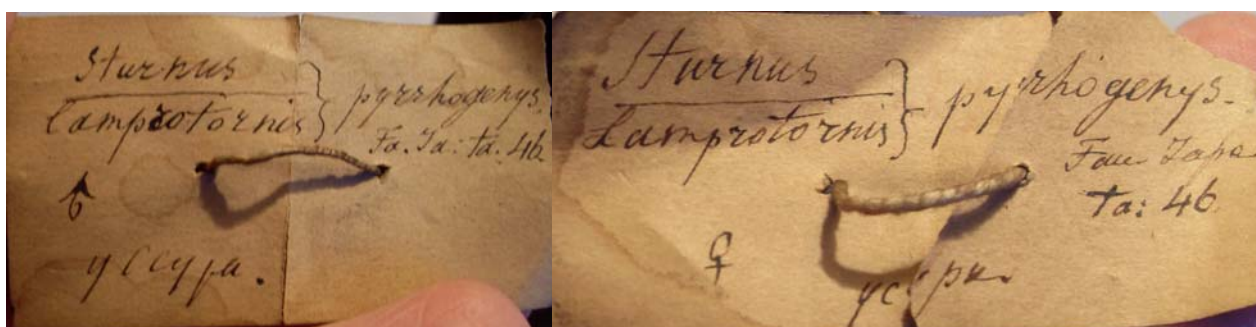 Sturnus
Lamprotornis } pyrrhogenys.
Fa. Ja: ta. 46
♂
уссура.
Sturnus
Lamprotornis } pyrrhogenys.
Fau Japo
ta: 46
♀